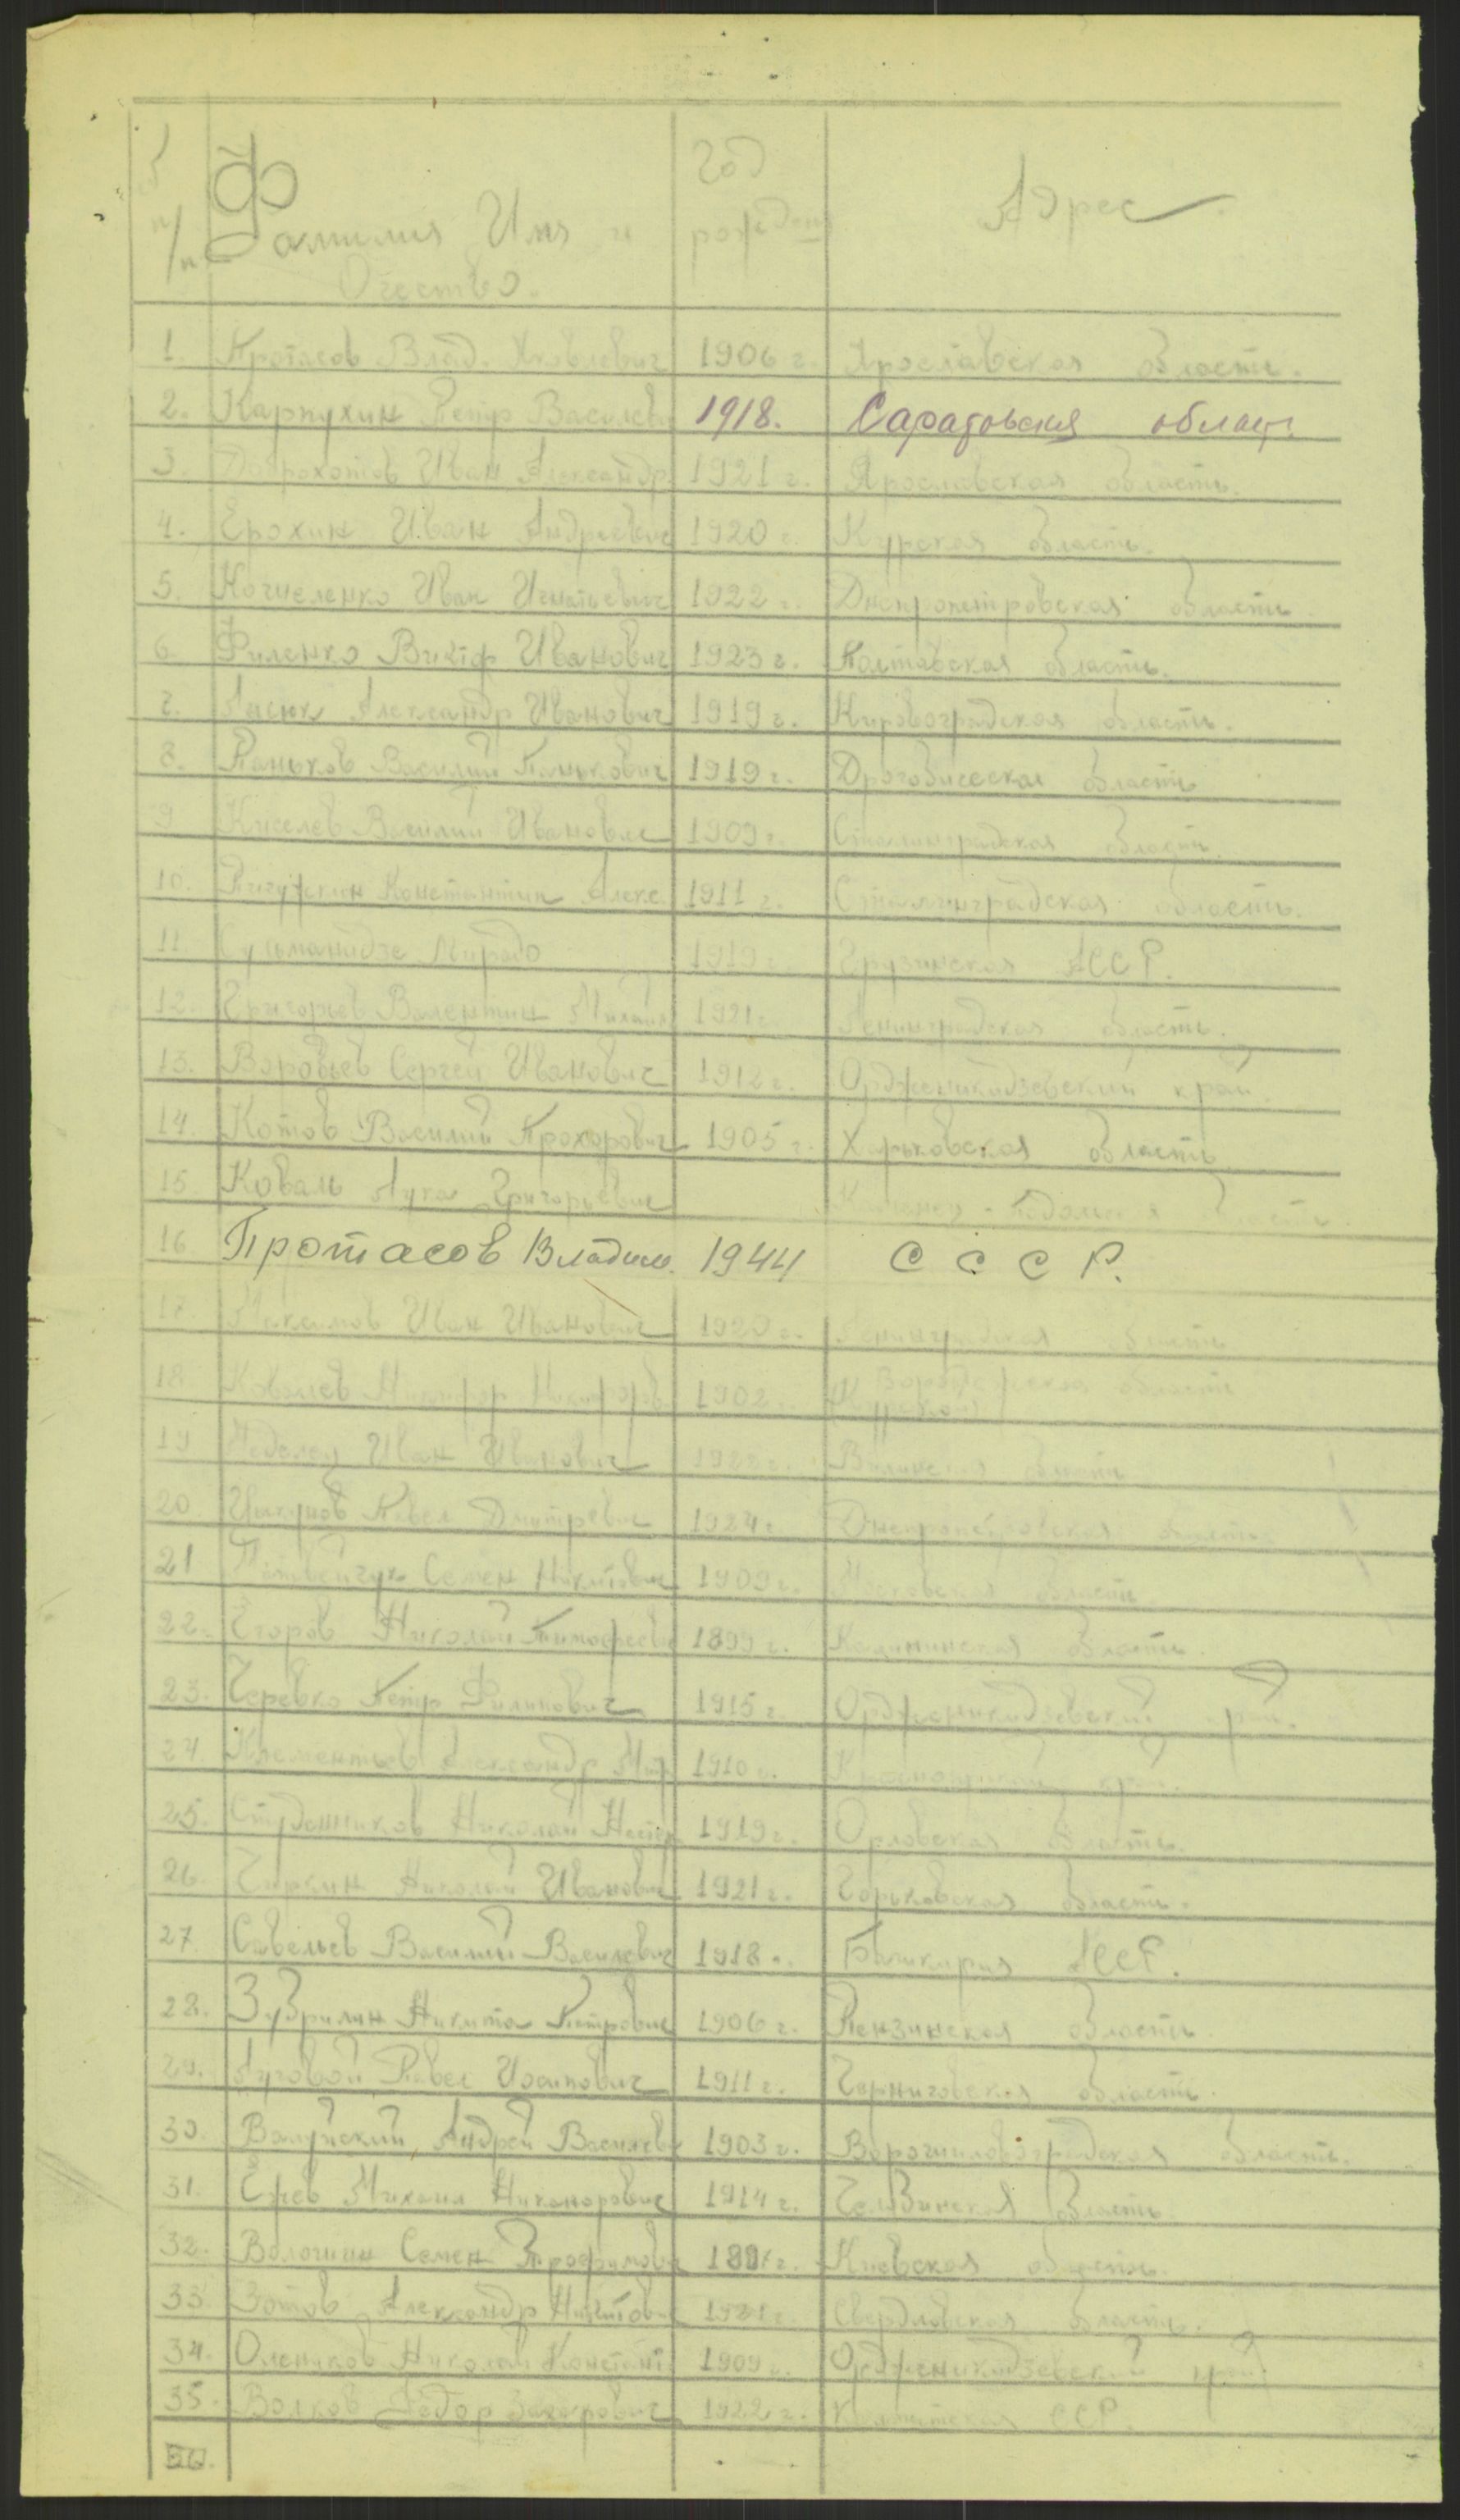 п/п Фамилия Имя и Отчество. Год рожден Адрес
1. Протасов Влад. Яковлевич 1906 г. Ярославская область.
2. Карпухин Петр Василеви 1918. Саратовская област.
3. Доброхотов Иван Александр. 1921 г. Ярославская область.
4. Ерохин Иван Андреевич 1920 г. Курская область.
5. Иван Игнатьевич 1922 г. Днепропетровская область.
6. Филенко Виктор Иванович 1923 г. Полтавская область.
7. Александр Иванович 1919 г. Кировоградская область.
8. Паньков Василий Панькович 1919 г. Дрогобическая область
9 Киселев Василий Иванович 1909 г. Сталинградская область.
10. Константин Алекс. 1911 г. Сталинградская область.
11. 1919 г. Грузинская АССР.
12. Григорьев Валентин Михаил 1921 г. Ленинградская область.
13. Воробьев Сергей Иванович 1912 г. Орджоникидзевский край.
14. Котов Василий Прохорович 1905 г. Харьковская область
15. Коваль Лука Григорьевич Каменец-Подольская область.
16. Протасов Владим. 1944 СССР.
17. Максимов Иван Иванович 1920 г. Ленинградская область
18. Ковалев Никифор Никифоров. 1902 г. область
19 Иван Иванович область
20. Павел Дмитревич 1924 г. Днепропетровская область.
21 Семен Никитович 1909 г. Московская область
22. Егоров Николай Тимофееви 1899 г. Калининская область.
23. Черевко Петр Филипович 1915 г. Орджоникидзевский край.
24. Клементьев Александр 1910 г. край.
25. Студенников Николай Нестр 1919 г. Орловская область.
26. Чиркин Николай Иванович 1921 г. Горьковская область.
27. Савельев Василий Василевич 1918 г. Башкирия АССР.
28. Зубрилин Никита Петрович 1906 г. Пензинская область.
29. Луговой Павел Иосипович 1911 г. Черниговская область.
30. Валуйский Андрей Василеви 1903 г. Ворошиловоградская область.
31. Ежев Михаил Никонорович 1914 г. область.
32. Волошин Семен Трофимови Киевская область.
33. Зотов Александр Никитови 1921 г. Свердловская область.
34. Олеников Николай Констант. 1909 г. Орджоникидзевский край.
35. Волков Федор Захарович 1922 г. ССР.
36.